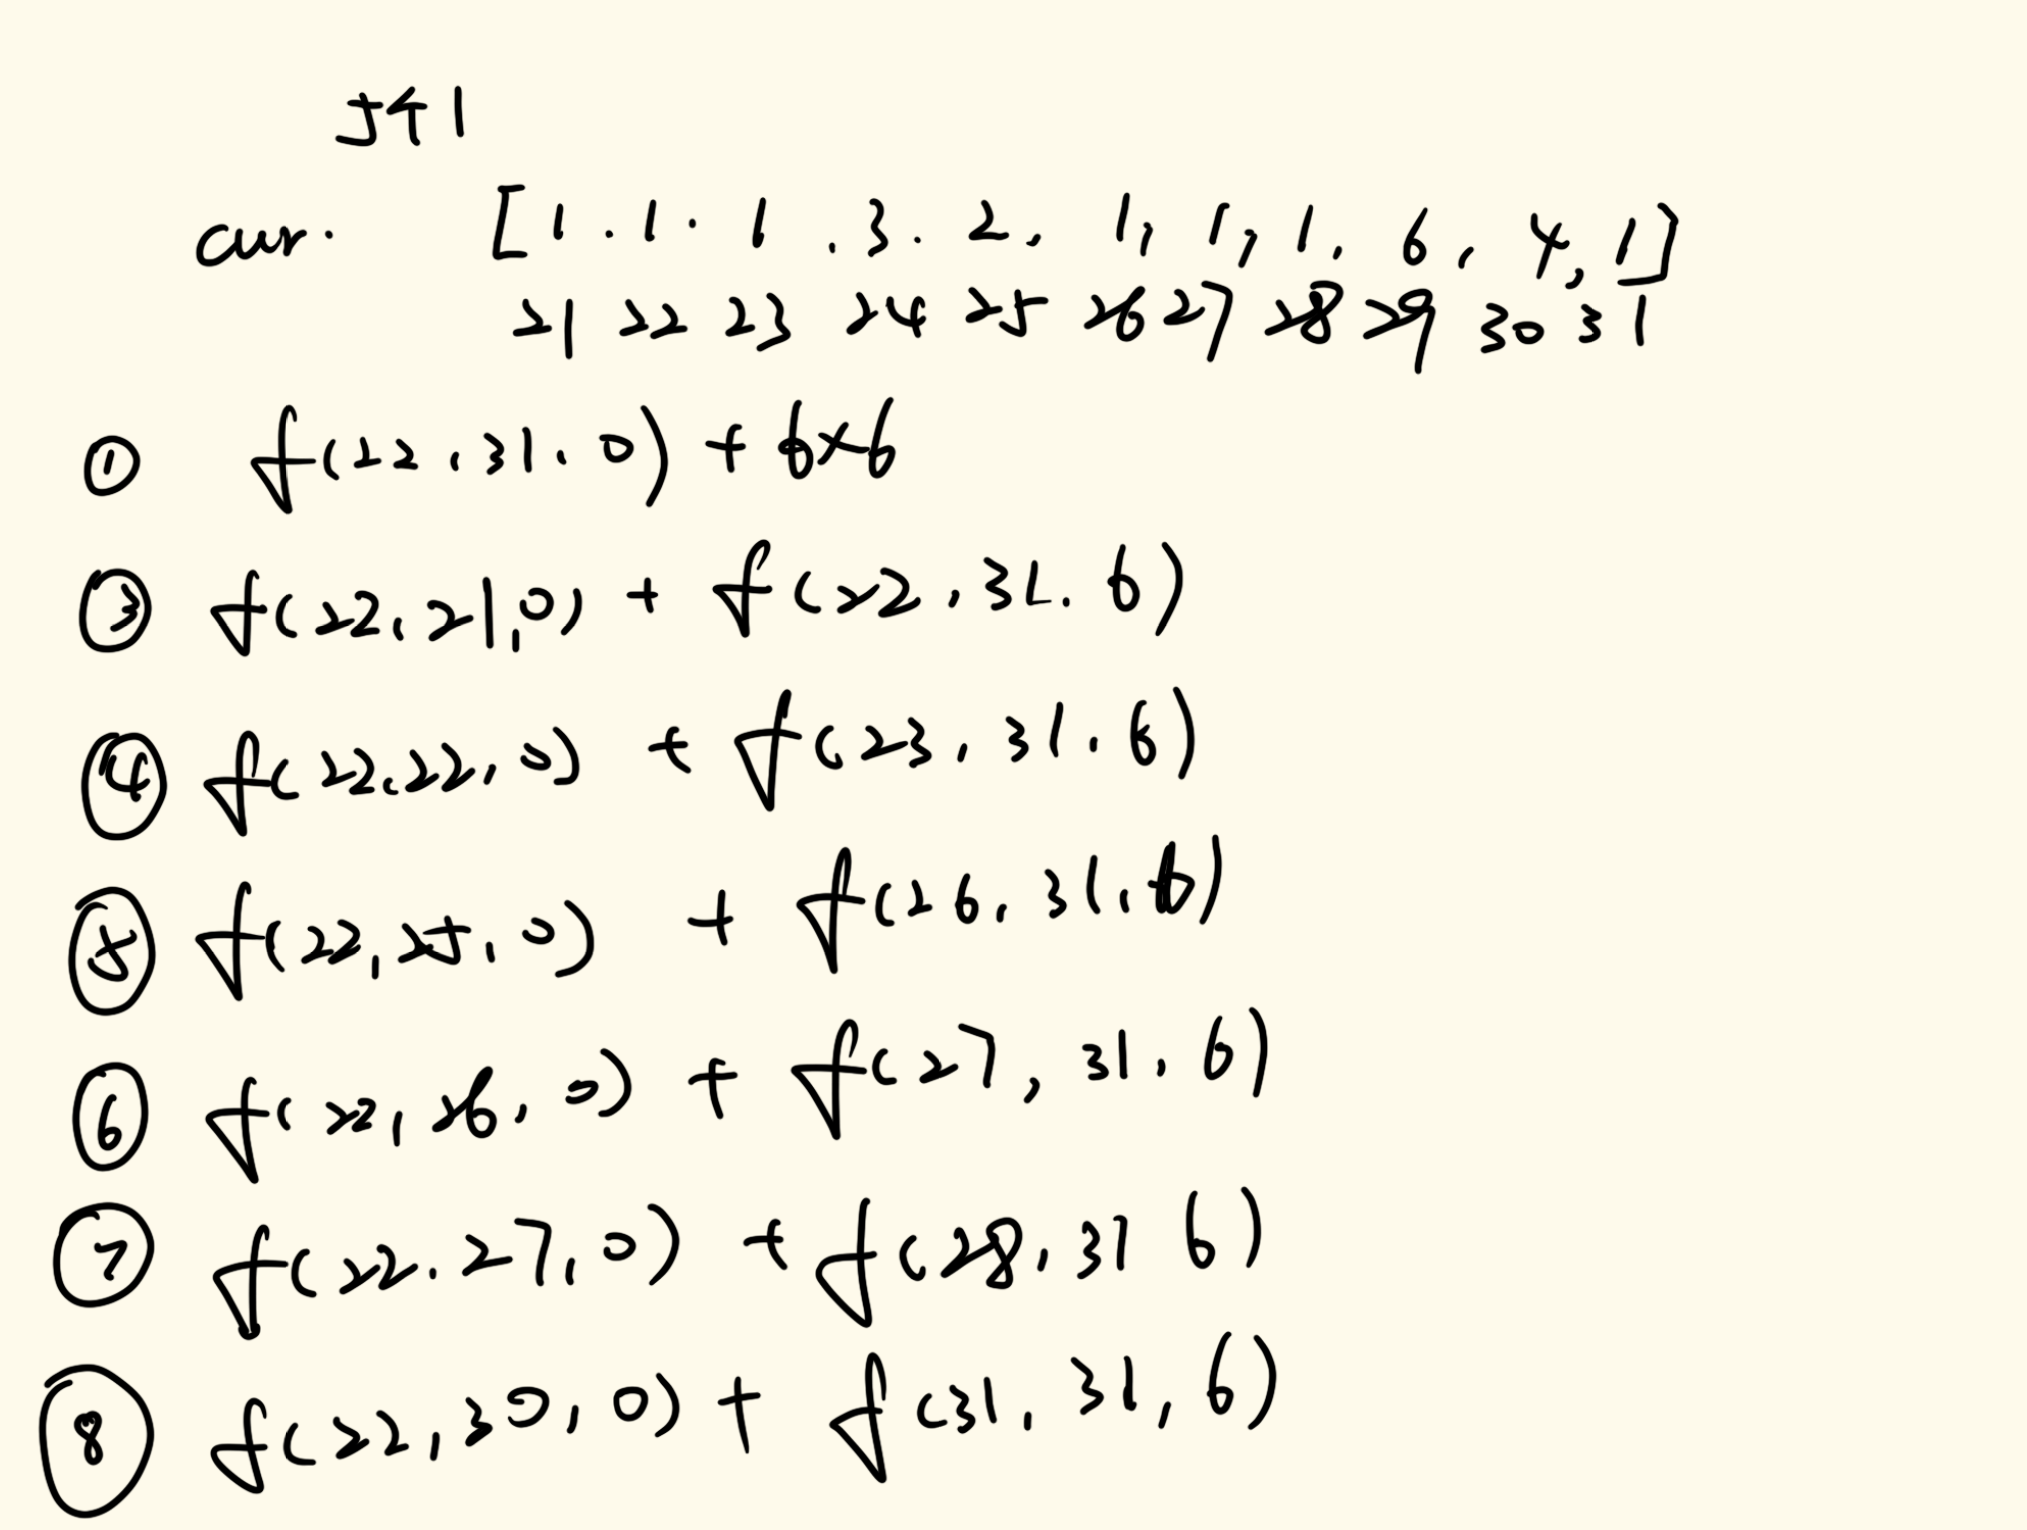 5个1
cur. [1.1.1.3.2,1,1,1,6,4,1]
21 22 23 24 25 26 27 28 29 30 31
① f(22,31.0)+6×6
③ f(22,21,0)+f(22,31.6)
④ f(22,22,0)+f(23,31.6)
⑤ f(22,25,0)+f(26,31,6)
⑥ f(22,26,0)+f(27,31.6)
⑦ f(22.27,0)+f(28,31 6)
⑧ f(22,30,0)+f(31,31,6)